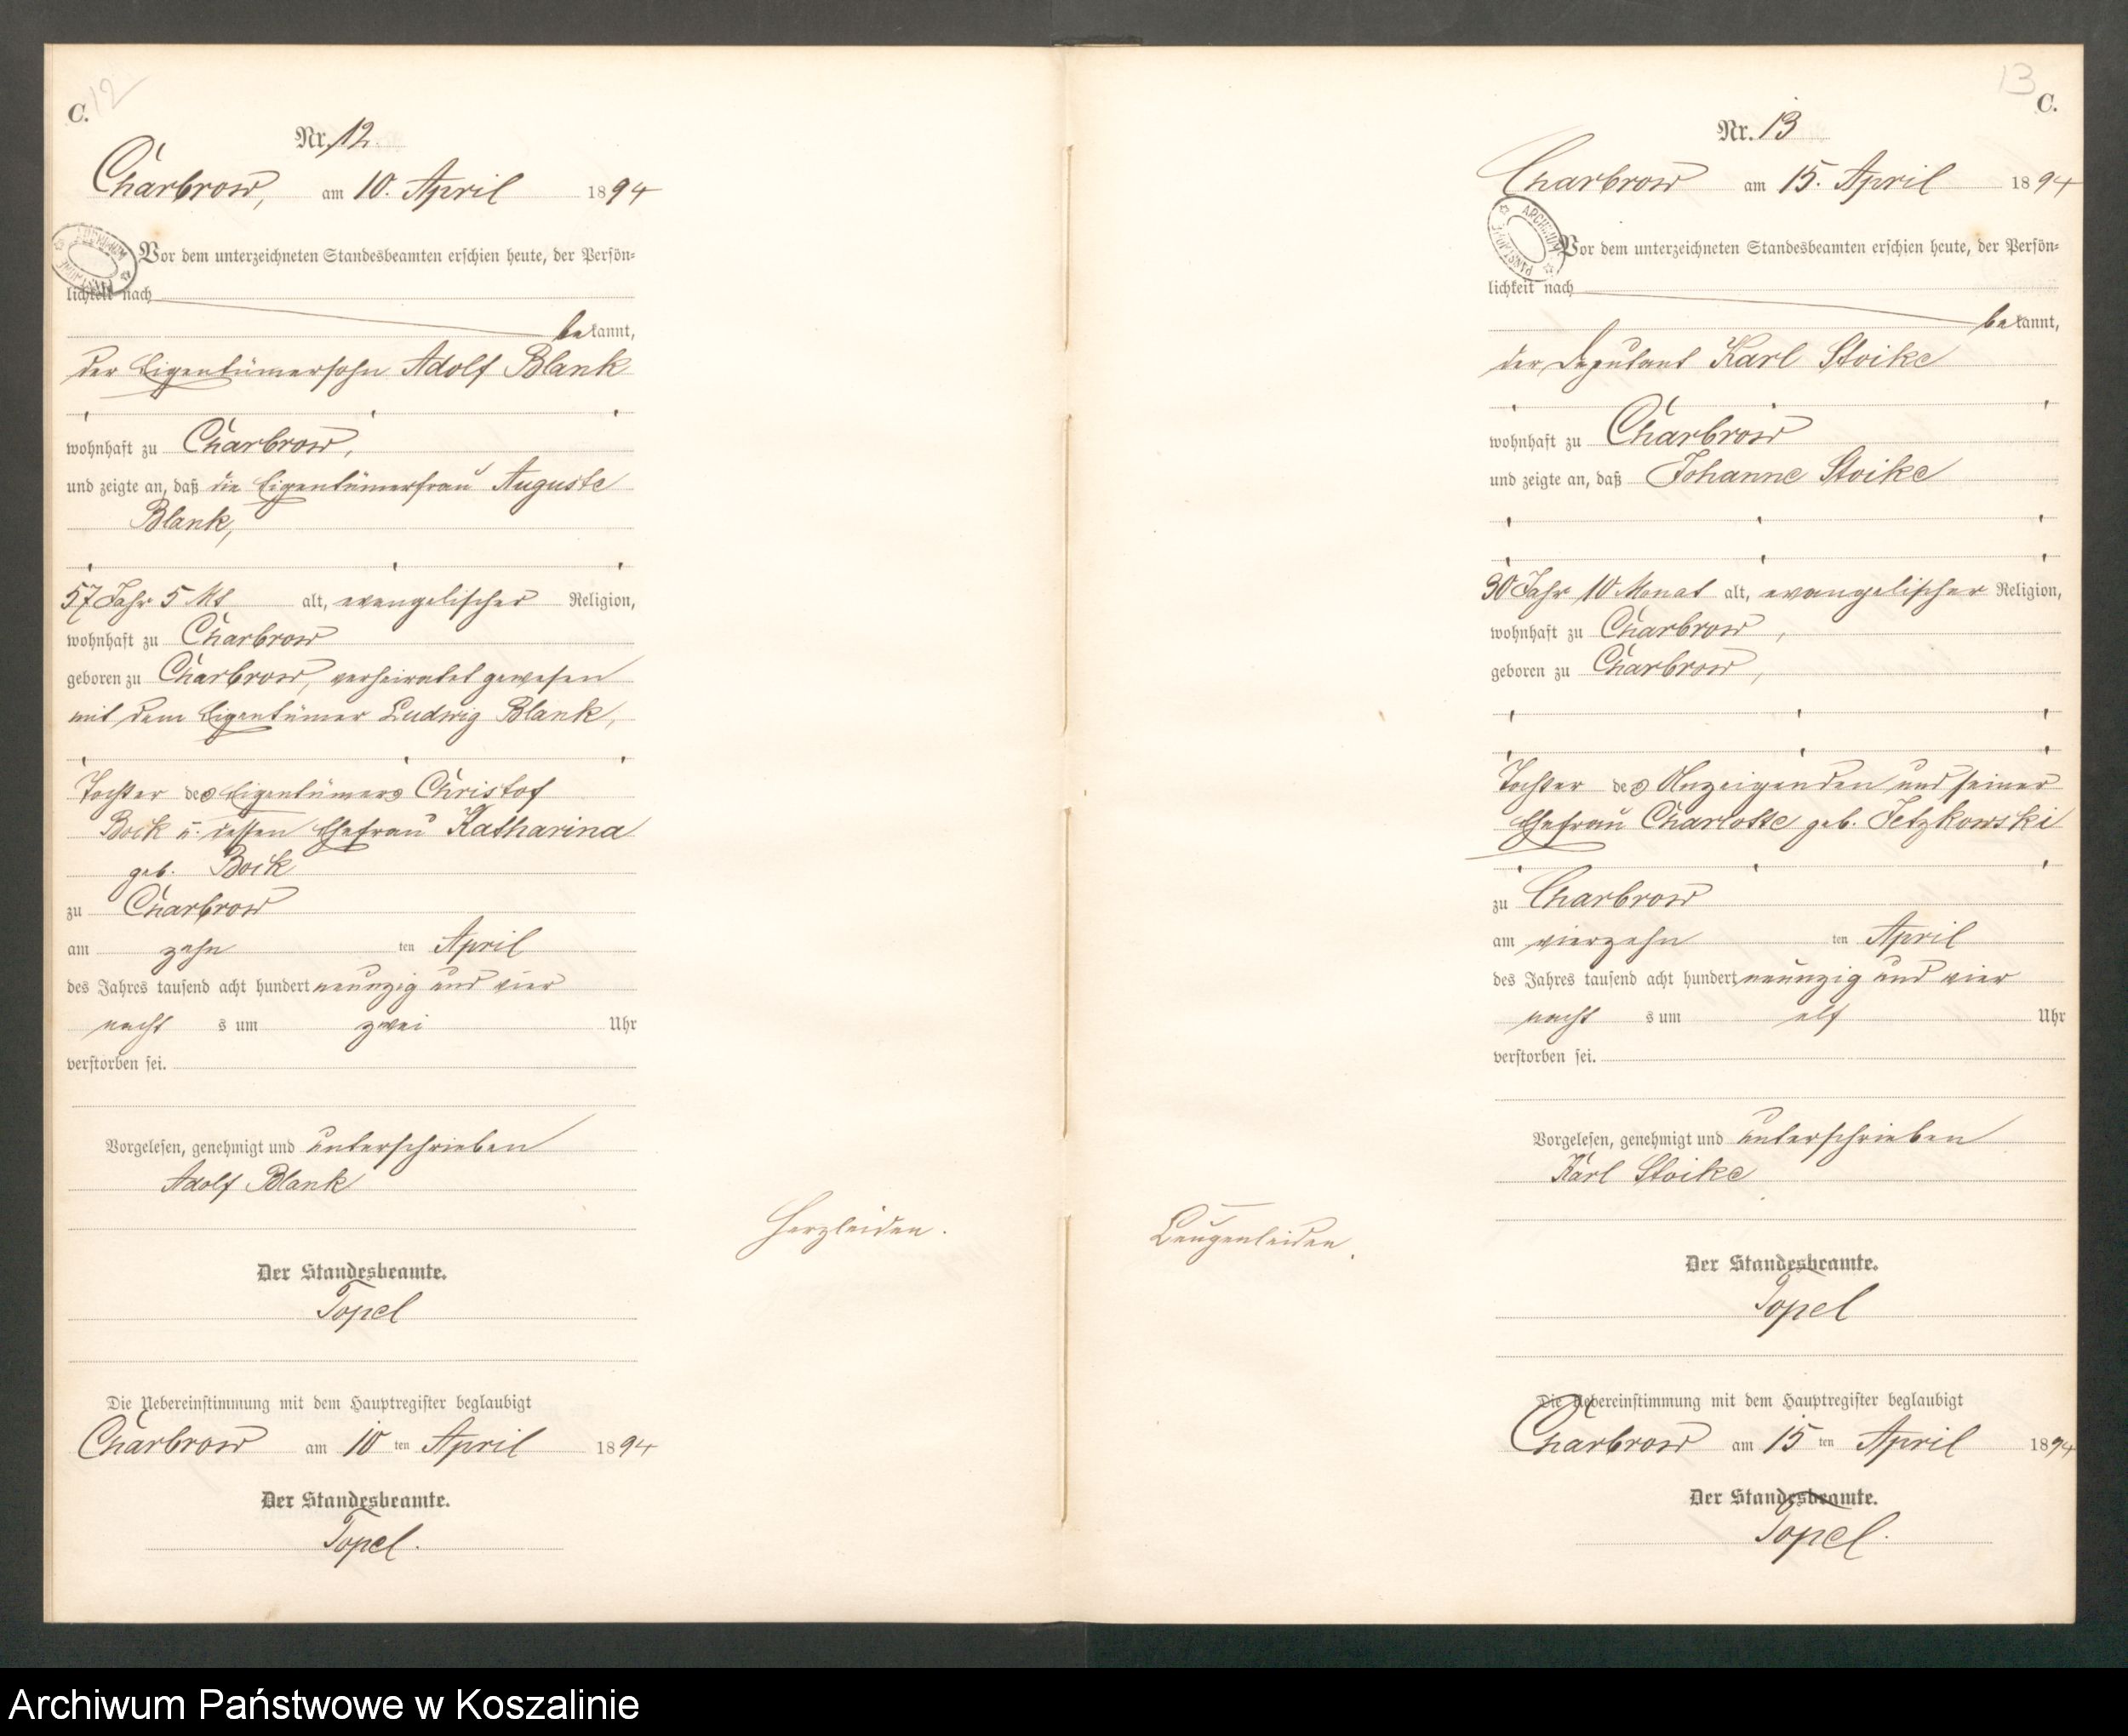 C.
12
Nr. 12.
Charbrow, am 10. April 1894
Vor dem unterzeichneten Standesbeamten erschien heute, der Persön-
lichkeit nach
bekannt,
der Eigentümersohn Adolf Blank
wohnhaft zu Charbrow,
und zeigte an, daß die Eigentümerfrau Auguste
Blank,
57 Jahr 5 Mt alt, evangelischer Religion,
wohnhaft zu Charbrow
geboren zu Charbrow, verheiratet gewesen
mit dem Eigentümer Ludwig Blank,
Tochter des Eigentümers Christof
Bock u. dessen Ehefrau Katharina
geb. Bock
zu Charbrow
am zehn ten April
des Jahres tausend acht hundert neunzig und vier
nacht s um zwei Uhr
verstorben sei.
Vorgelesen, genehmigt und unterschrieben
Adolf Blank
Herzleiden.
Der Standesbeamte.
Topel
Die Uebereinstimmung mit dem Hauptregister beglaubigt
Charbrow am 10 ten April 1894
Der Standesbeamte.
Topel.
13
C.
Nr. 13
Charbrow am 15. April 1894
ARCHIWUM PAŃSTWOWE
Vor dem unterzeichneten Standesbeamten erschien heute, der Persön-
lichkeit nach
bekannt,
der Deputant Karl Stoike
wohnhaft zu Charbrow
und zeigte an, daß Johanne Stoike
30 Jahr 10 Monat alt, evangelischer Religion,
wohnhaft zu Charbrow,
geboren zu Charbrow,
Tochter des Anzeigenden und seiner
Ehefrau Charlotte geb. Jetzkowski
zu Charbrow
am vierzehn ten April
des Jahres tausend acht hundert neunzig und vier
nacht s um elf Uhr
verstorben sei.
Vorgelesen, genehmigt und unterschrieben
Karl Stoike
Lungenleiden.
Der Standesbeamte.
Topel
Die Uebereinstimmung mit dem Hauptregister beglaubigt
Charbrow am 15 ten April 1894
Der Standesbeamte.
Topel.
Archiwum Państwowe w Koszalinie